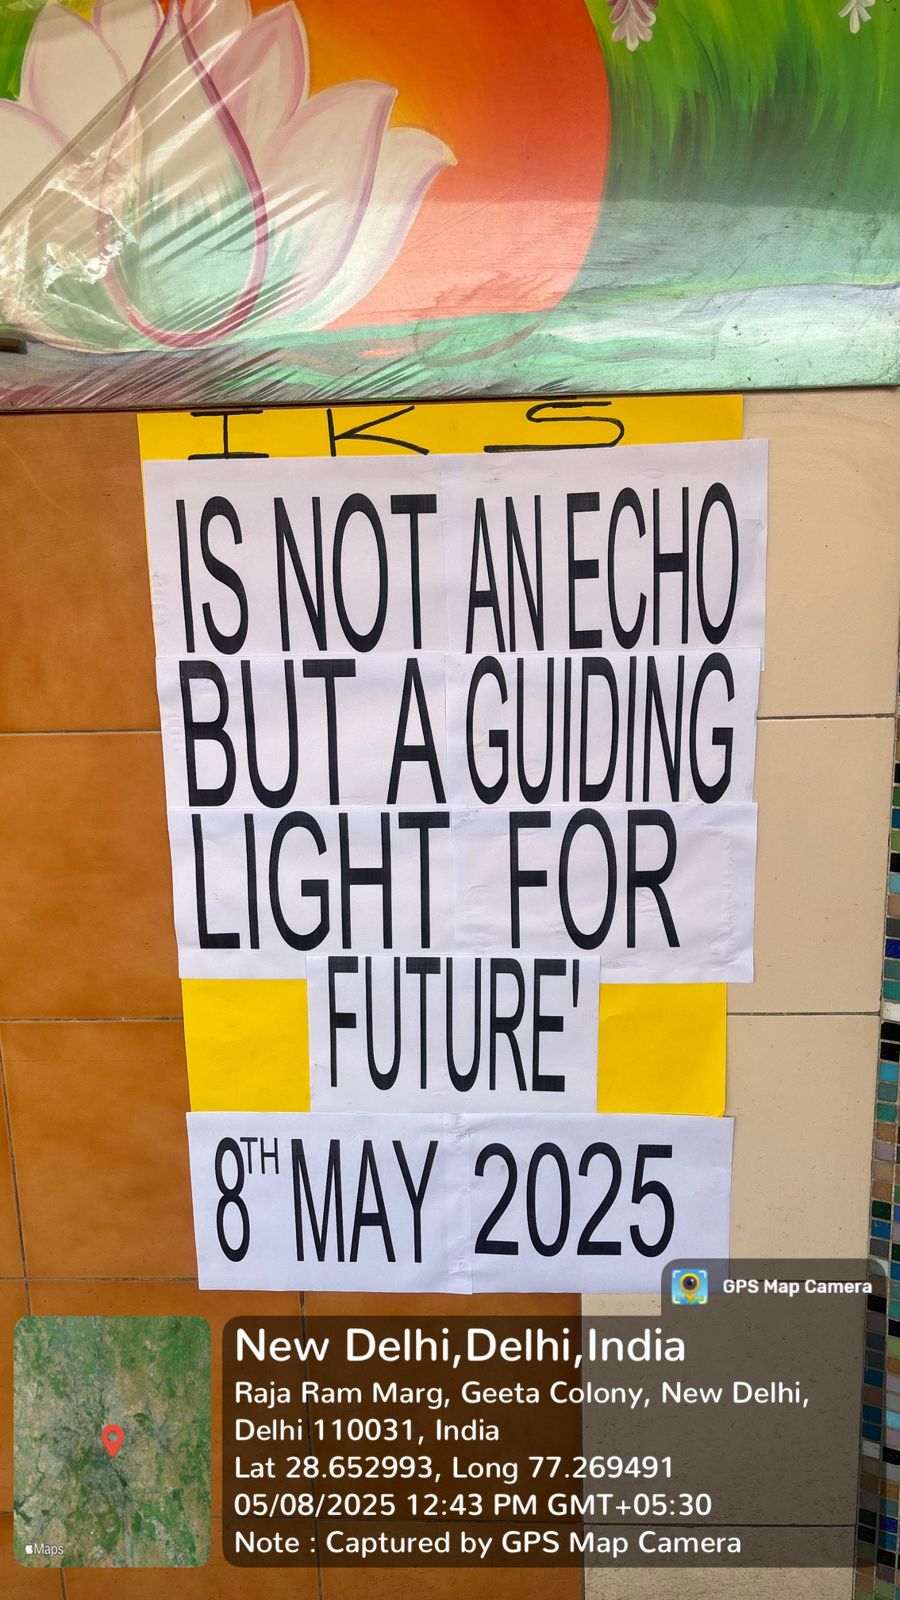 IKS
IS NOT AN ECHO
BUT A GUIDING
LIGHT FOR
FUTURE'
8TH MAY 2025
GPS Map Camera
New Delhi,Delhi,India
Raja Ram Marg, Geeta Colony, New Delhi,
Delhi 110031, India
Lat 28.652993, Long 77.269491
05/08/2025 12:43 PM GMT+05:30
Note : Captured by GPS Map Camera
Maps